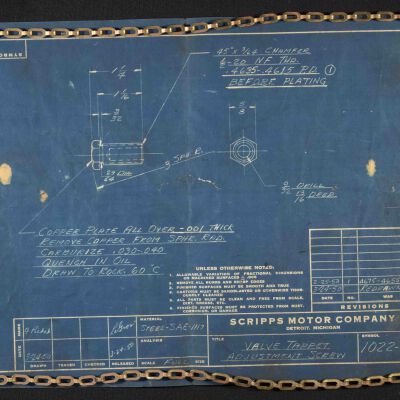 45° x 3/64 CHAMFER
-20 N.F. THD.
.4635-.4615 P.D. ①
BEFORE PLATING
1 1/4
1 1/16
3/32
5/8
29/64 DIA.
3 SPH. R.
9/32 DRILL
13/16 DEEP
COPPER PLATE ALL OVER - .001 THICK
REMOVE COPPER FROM SPHR. RAD.
CARBURIZE .030-.040
QUENCH IN OIL
DRAW TO ROCK. 60°C
UNLESS OTHERWISE NOTED:
1. ALLOWABLE VARIATION OF FRACTIONAL DIMENSIONS
ON MACHINED SURFACES ± .010
2. REMOVE ALL BURRS AND SHARP EDGES
3. FINISHED SURFACES MUST BE SMOOTH AND TRUE
4. CASTINGS MUST BE SANDBLASTED OR OTHERWISE
PROPERLY CLEANED
5. ALL PARTS MUST BE CLEAN AND FREE FROM SCALE,
DIRT, TUMBLINGS, ETC.
6. FINISHED SURFACES MUST BE PROTECTED FROM RUST,
CORROSION, OR DAMAGE
DATE NO. WAS
REVISIONS
SCRIPPS MOTOR COMPANY
DETROIT, MICHIGAN
MATERIAL
STEEL-SAE-1117
ANALYSIS
SCALE FULL SIZE
NAME
DATE
DRAWN TRACED CHECKED RELEASED
TITLE
VALVE TAPPET
ADJUSTMENT SCREW
SYMBOL
1022-